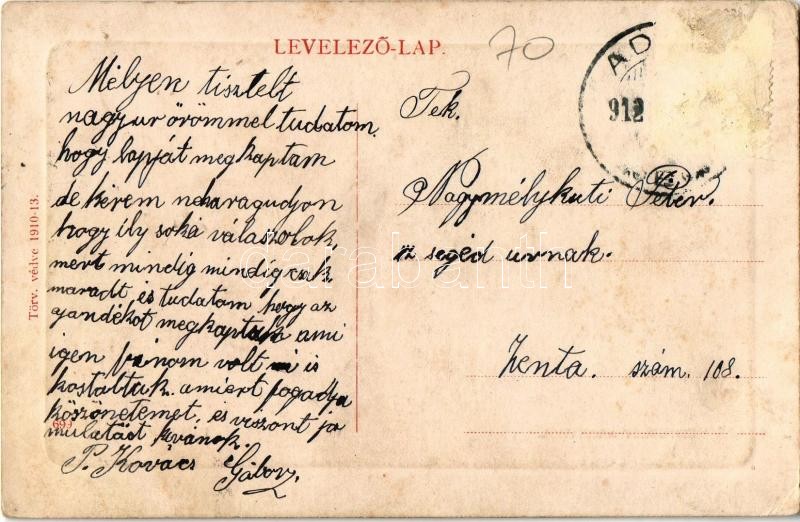 LEVELEZŐ-LAP.
70
AD
912
Mélyen tisztelt
nagyur örömmel tudatom.
hogy lapját megkaptam
de kérem neharagudjon
hogy ily soká válaszolok,
mert mindig mindig csak
maradt, és tudatom hogy az
ajandékot megkaptuk ami
igen finom volt mi is
kostoltuk. amiért fogadja
köszönetemet. és viszont jo
mulatást kivánok.
P. Kovács Gábor.
Tek.
Nagymélykuti Péter.
segéd urnak.
Zenta. szám. 108.
Törv. védve 1910-13.
699
darabanth